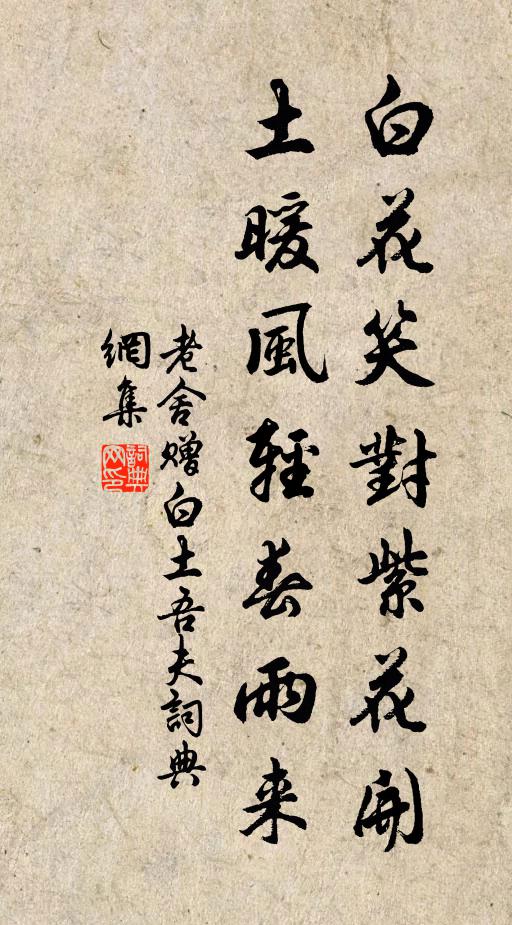 白花笑對紫花開
土暖風輕春雨来
老舍赠白土吾夫詞典
網集
詞典
网印